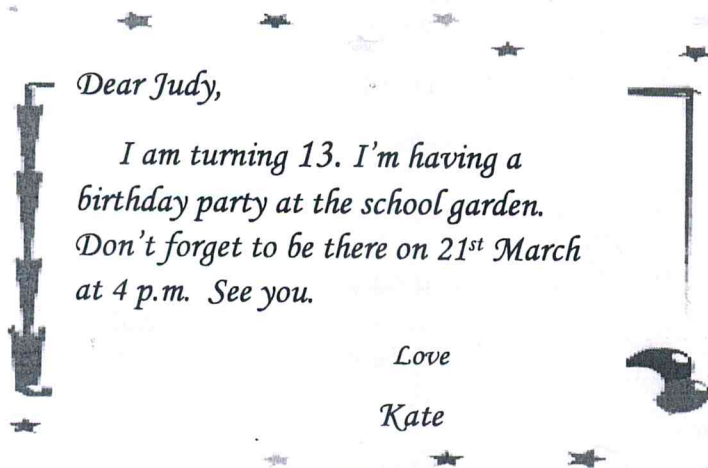 Dear Judy,
I am turning 13. I'm having a
birthday party at the school garden.
Don't forget to be there on 21st March
at 4 p.m. See you.
Love
Kate